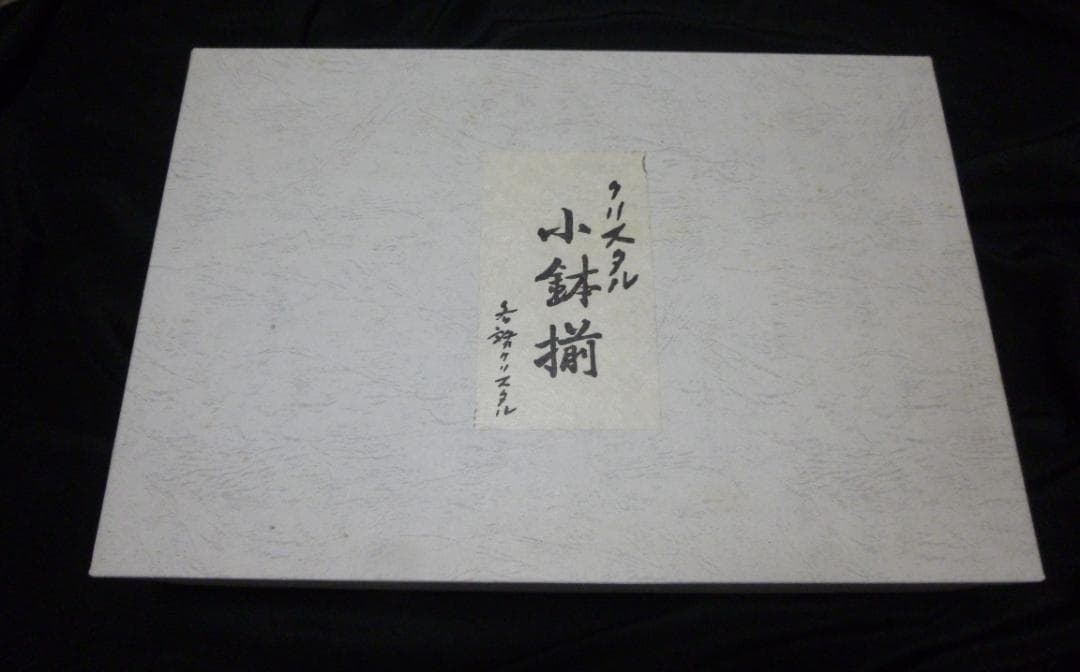 クリスタル
小鉢揃
各務クリスタル